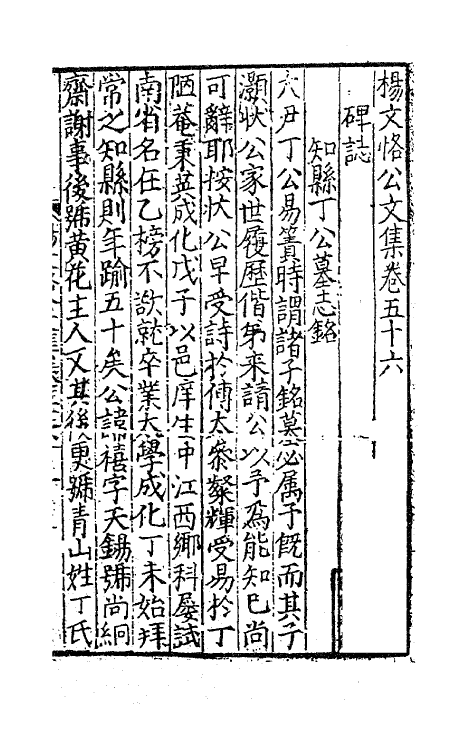 楊文恪公文集卷五十六
碑誌
知縣丁公墓志銘
六尹丁公易簀時謂諸子銘墓必属予既而其子
灝狀公家世履歷偕弟来請公以予爲能知已尚
可辭耶按狀公早受詩於傅太叅粲輝受易於丁
陋菴秉英成化戊子以邑庠生中江西鄉科屡試
南省名在乙榜不敢就卒業大學成化丁未始拜
常之知縣則年踰五十矣公諱禧字天錫號尚絅
齋謝事後號黄花主人又其後更號青山姓丁氏